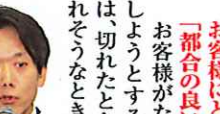 お客様に
「都合の良い
お客様がな
しようとする
は、切れたと
れそうなとき